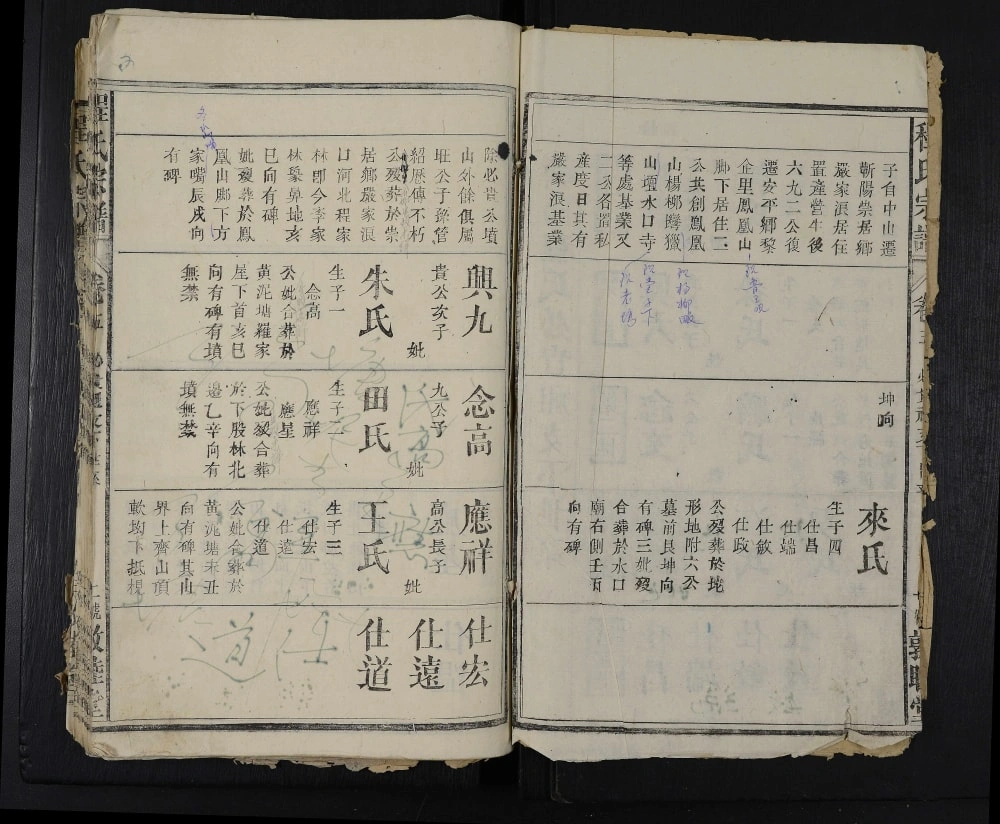 程氏宗譜
子自中山遷
蘄陽崇居鄉
嚴家浪居住
置產營生後
六九二公復
遷安平鄉黎
企里鳳凰山
腳下居住二
公共創鳳凰
山楊柳灣獵
山壇水口寺
等處基業又
二公各置私
產度日其有
嚴家浪基業
坤向
來氏
生子四
仕昌
仕端
仕敘
仕政
公歿葬於垅
形地附六公
墓前艮坤向
有碑三妣歿
合葬於水口
廟右側壬丙
向有碑
除必貴公墳
山外餘俱屬
班公子孫管
紹歷傳不朽
公歿葬於崇
居鄉嚴家浪
口河北程家
林卽今李家
林擧鼻地亥
巳向有碑
妣歿葬於鳳
凰山腳下方
家嘴辰戌向
有碑
興九
貴公次子
妣
朱氏
生子一
念高
公妣合葬於
黃泥塘羅家
屋下首亥巳
向有碑有墳
無禁
念高
九公子
妣
田氏
生子二
應祥
應星
公妣歿合葬
於下股林北
邊乙辛向有
墳無禁
應祥
高公長子
妣
王氏
生子三
仕宏
仕遠
仕道
公妣合葬於
黃泥塘未丑
向有碑其山
界上齊山頂
軟均下抵梘
仕宏
仕遠
仕道
程氏宗譜
道